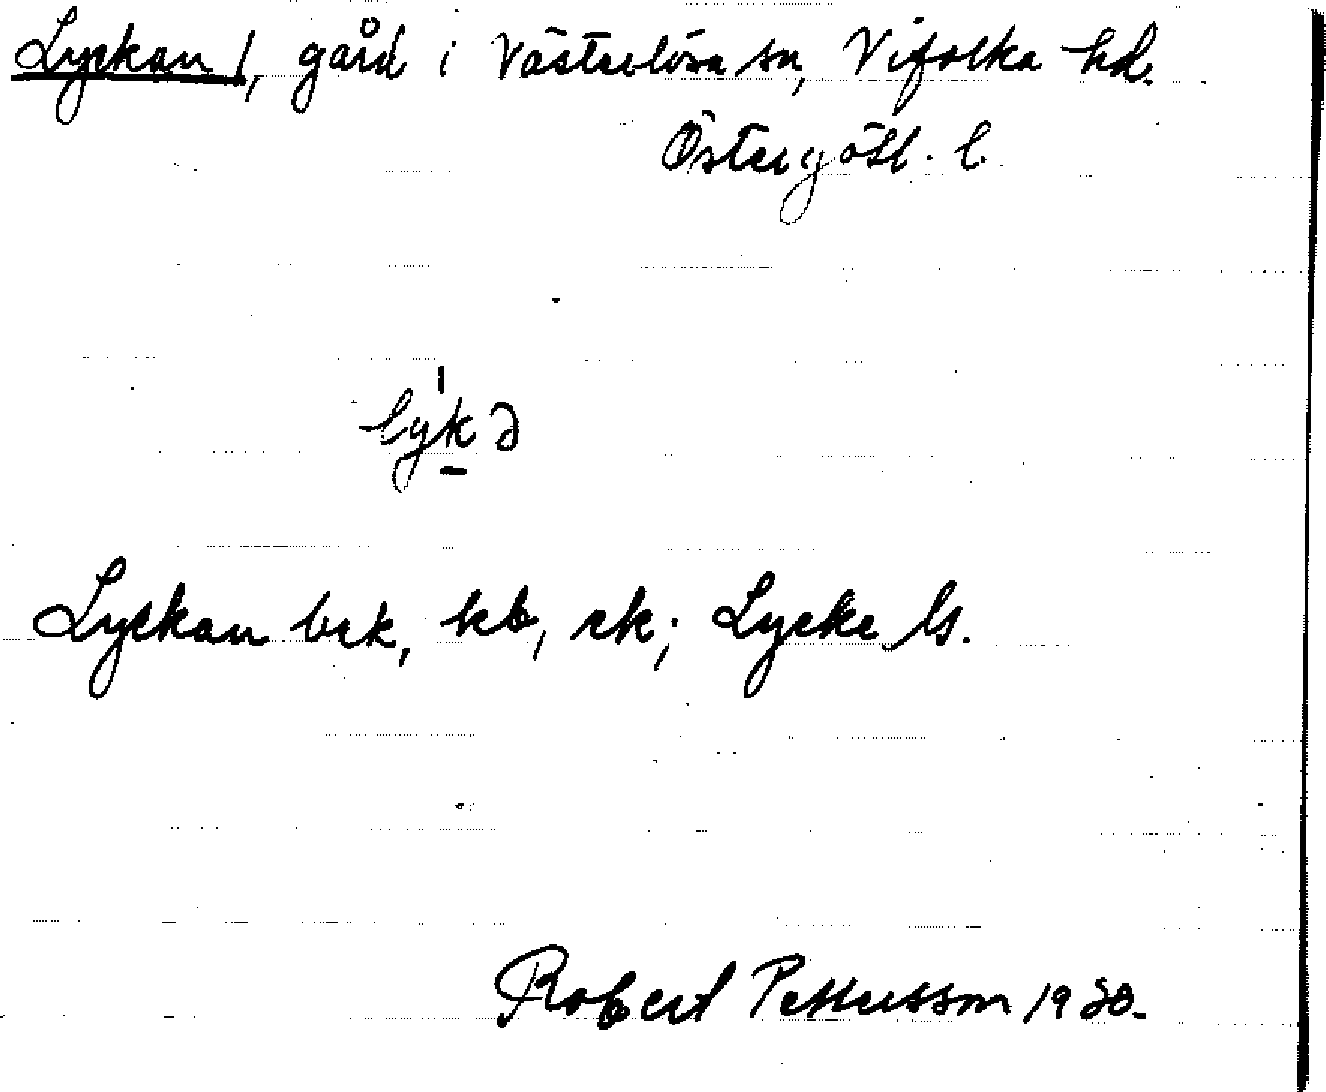 Lyckan 1, gård i Västerlösa sn, Vifolka hd.
Östergötl. l.
lyk
Lyckan bek, kb, ek; Lycke ls.
Robert Pettersson 1930.